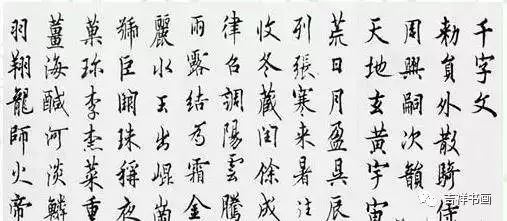 千字文
勅員外散騎侍
周興嗣次韻
天地玄黄宇宙
荒日月盈昃辰
列張寒来暑往
收冬藏閏餘成
律召調陽雲騰
雨露結為霜金
麗水玉出崐崗
號巨闕珠稱夜
菓珍李柰菜重
薑海鹹河淡鱗
羽翔龍師火帝
吉祥书画